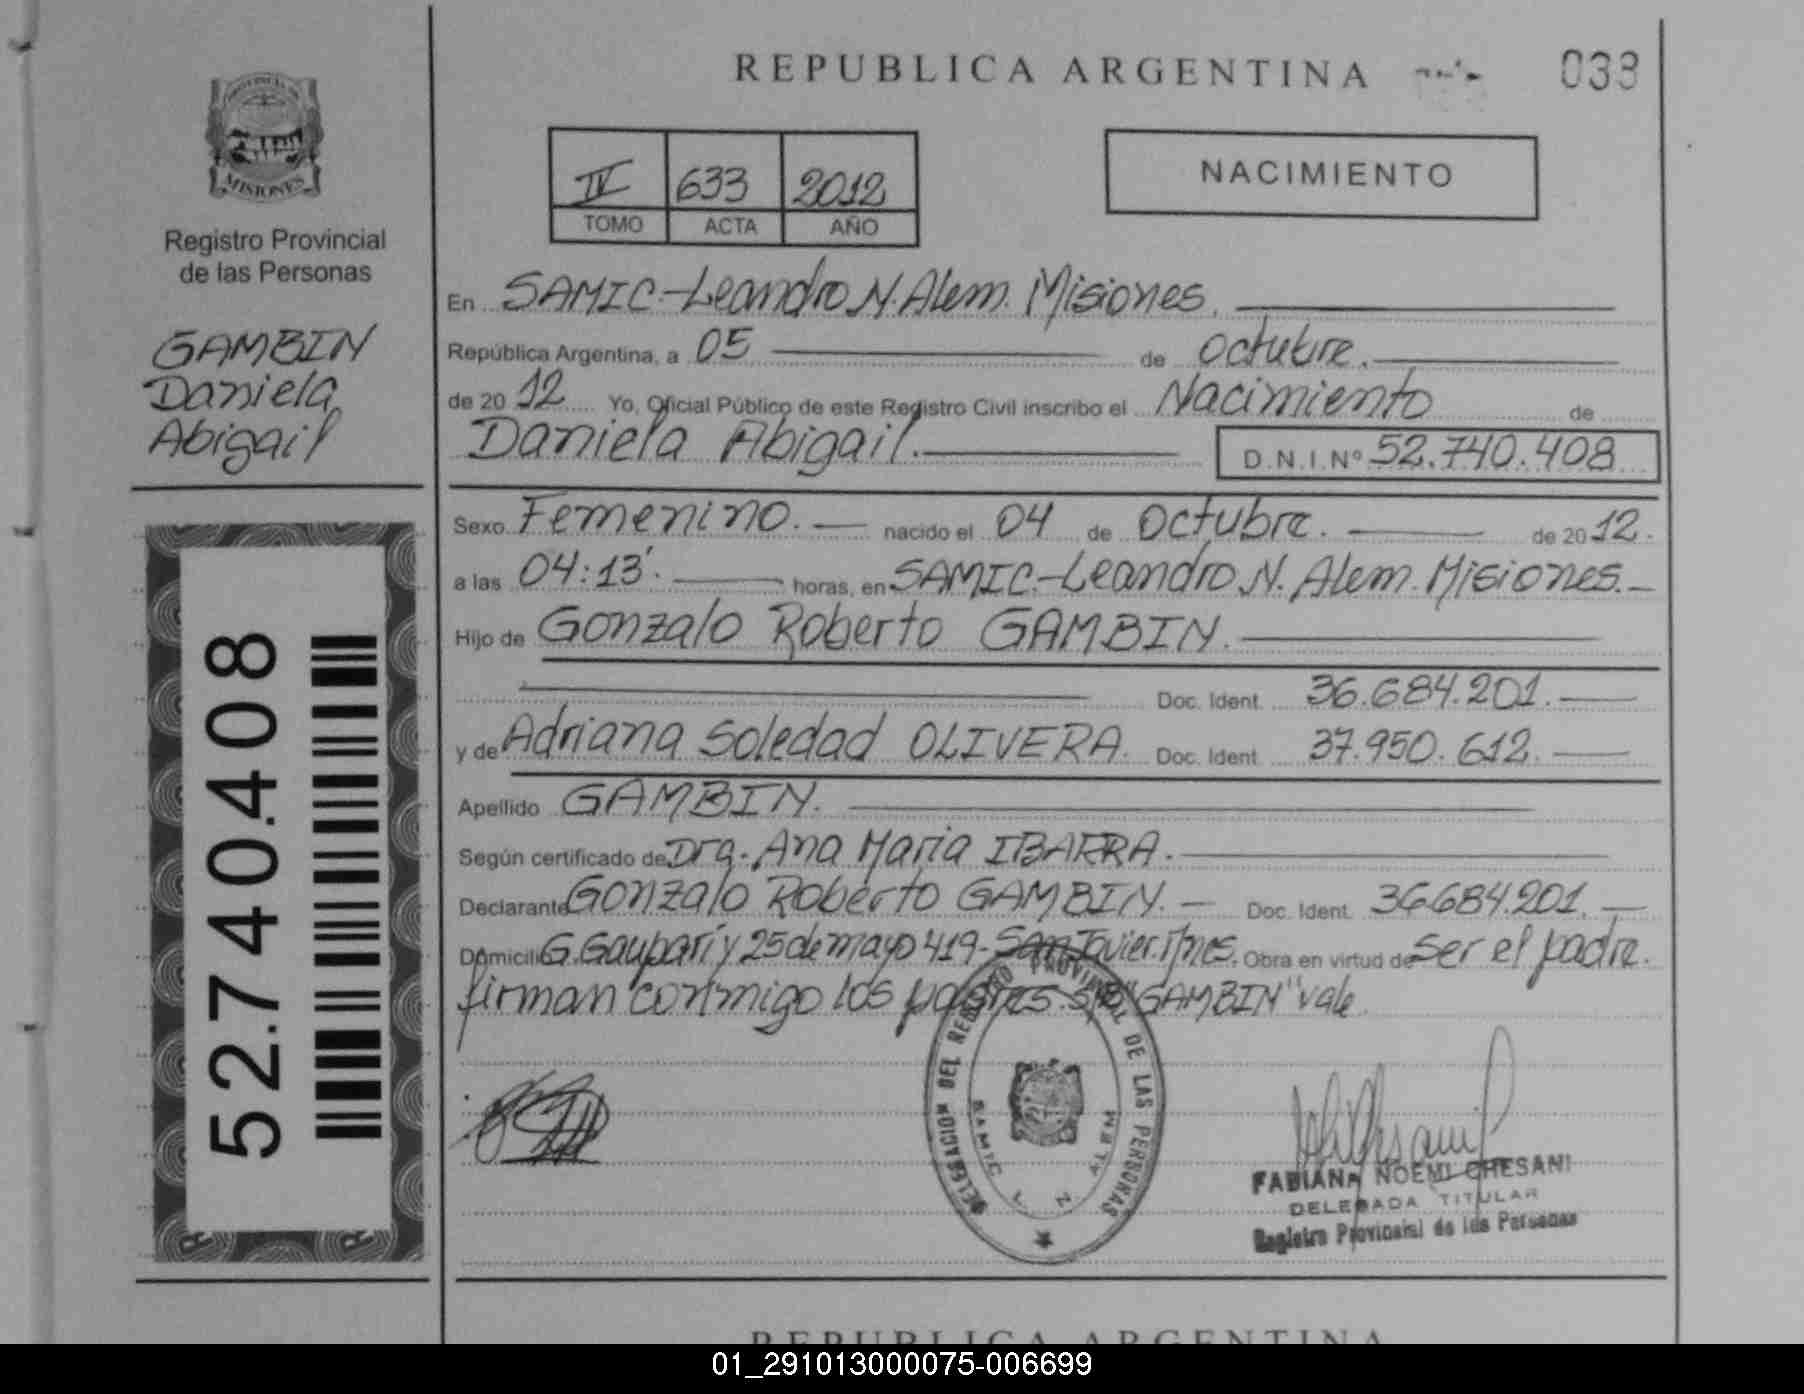 REPUBLICA ARGENTINA
033
MISIONES
Registro Provincial
de las Personas
GAMBIN
Daniela
Abigail
52.740.408
IV 633 2012
TOMO ACTA AÑO
NACIMIENTO
En SAMIC.-Leandro N. Alem. Misiones.
República Argentina, a 05 de Octubre.
de 2012 Yo, Oficial Público de este Registro Civil inscribo el Nacimiento de
Daniela Abigail. D.N.I.Nº 52.740.408
Sexo Femenino. nacido el 04 de Octubre. de 2012.
a las 04:13'. horas, en SAMIC.-Leandro N. Alem. Misiones.-
Hijo de Gonzalo Roberto GAMBIN.
Doc. Ident. 36.684.201.
y de Adriana Soledad OLIVERA. Doc. Ident. 37.950.612.
Apellido GAMBIN.
Según certificado de Dra. Ana Maria IBARRA.
Declarante Gonzalo Roberto GAMBIN. Doc. Ident. 36684.201.
Domicilio G. y 25 de mayo 419- San Javier. Mnes. Obra en virtud de ser el padre.
firman conmigo los padres. S/B "GAMBIN" vale
DELEGACION DEL REGISTRO PROVINCIAL DE LAS PERSONAS
SAMIC L. N. ALEM
FABIANA NOEMI CHESANI
DELEGADA TITULAR
Registro Provincial de las Personas
REPUBLICA ARGENTINA
01_291013000075-006699